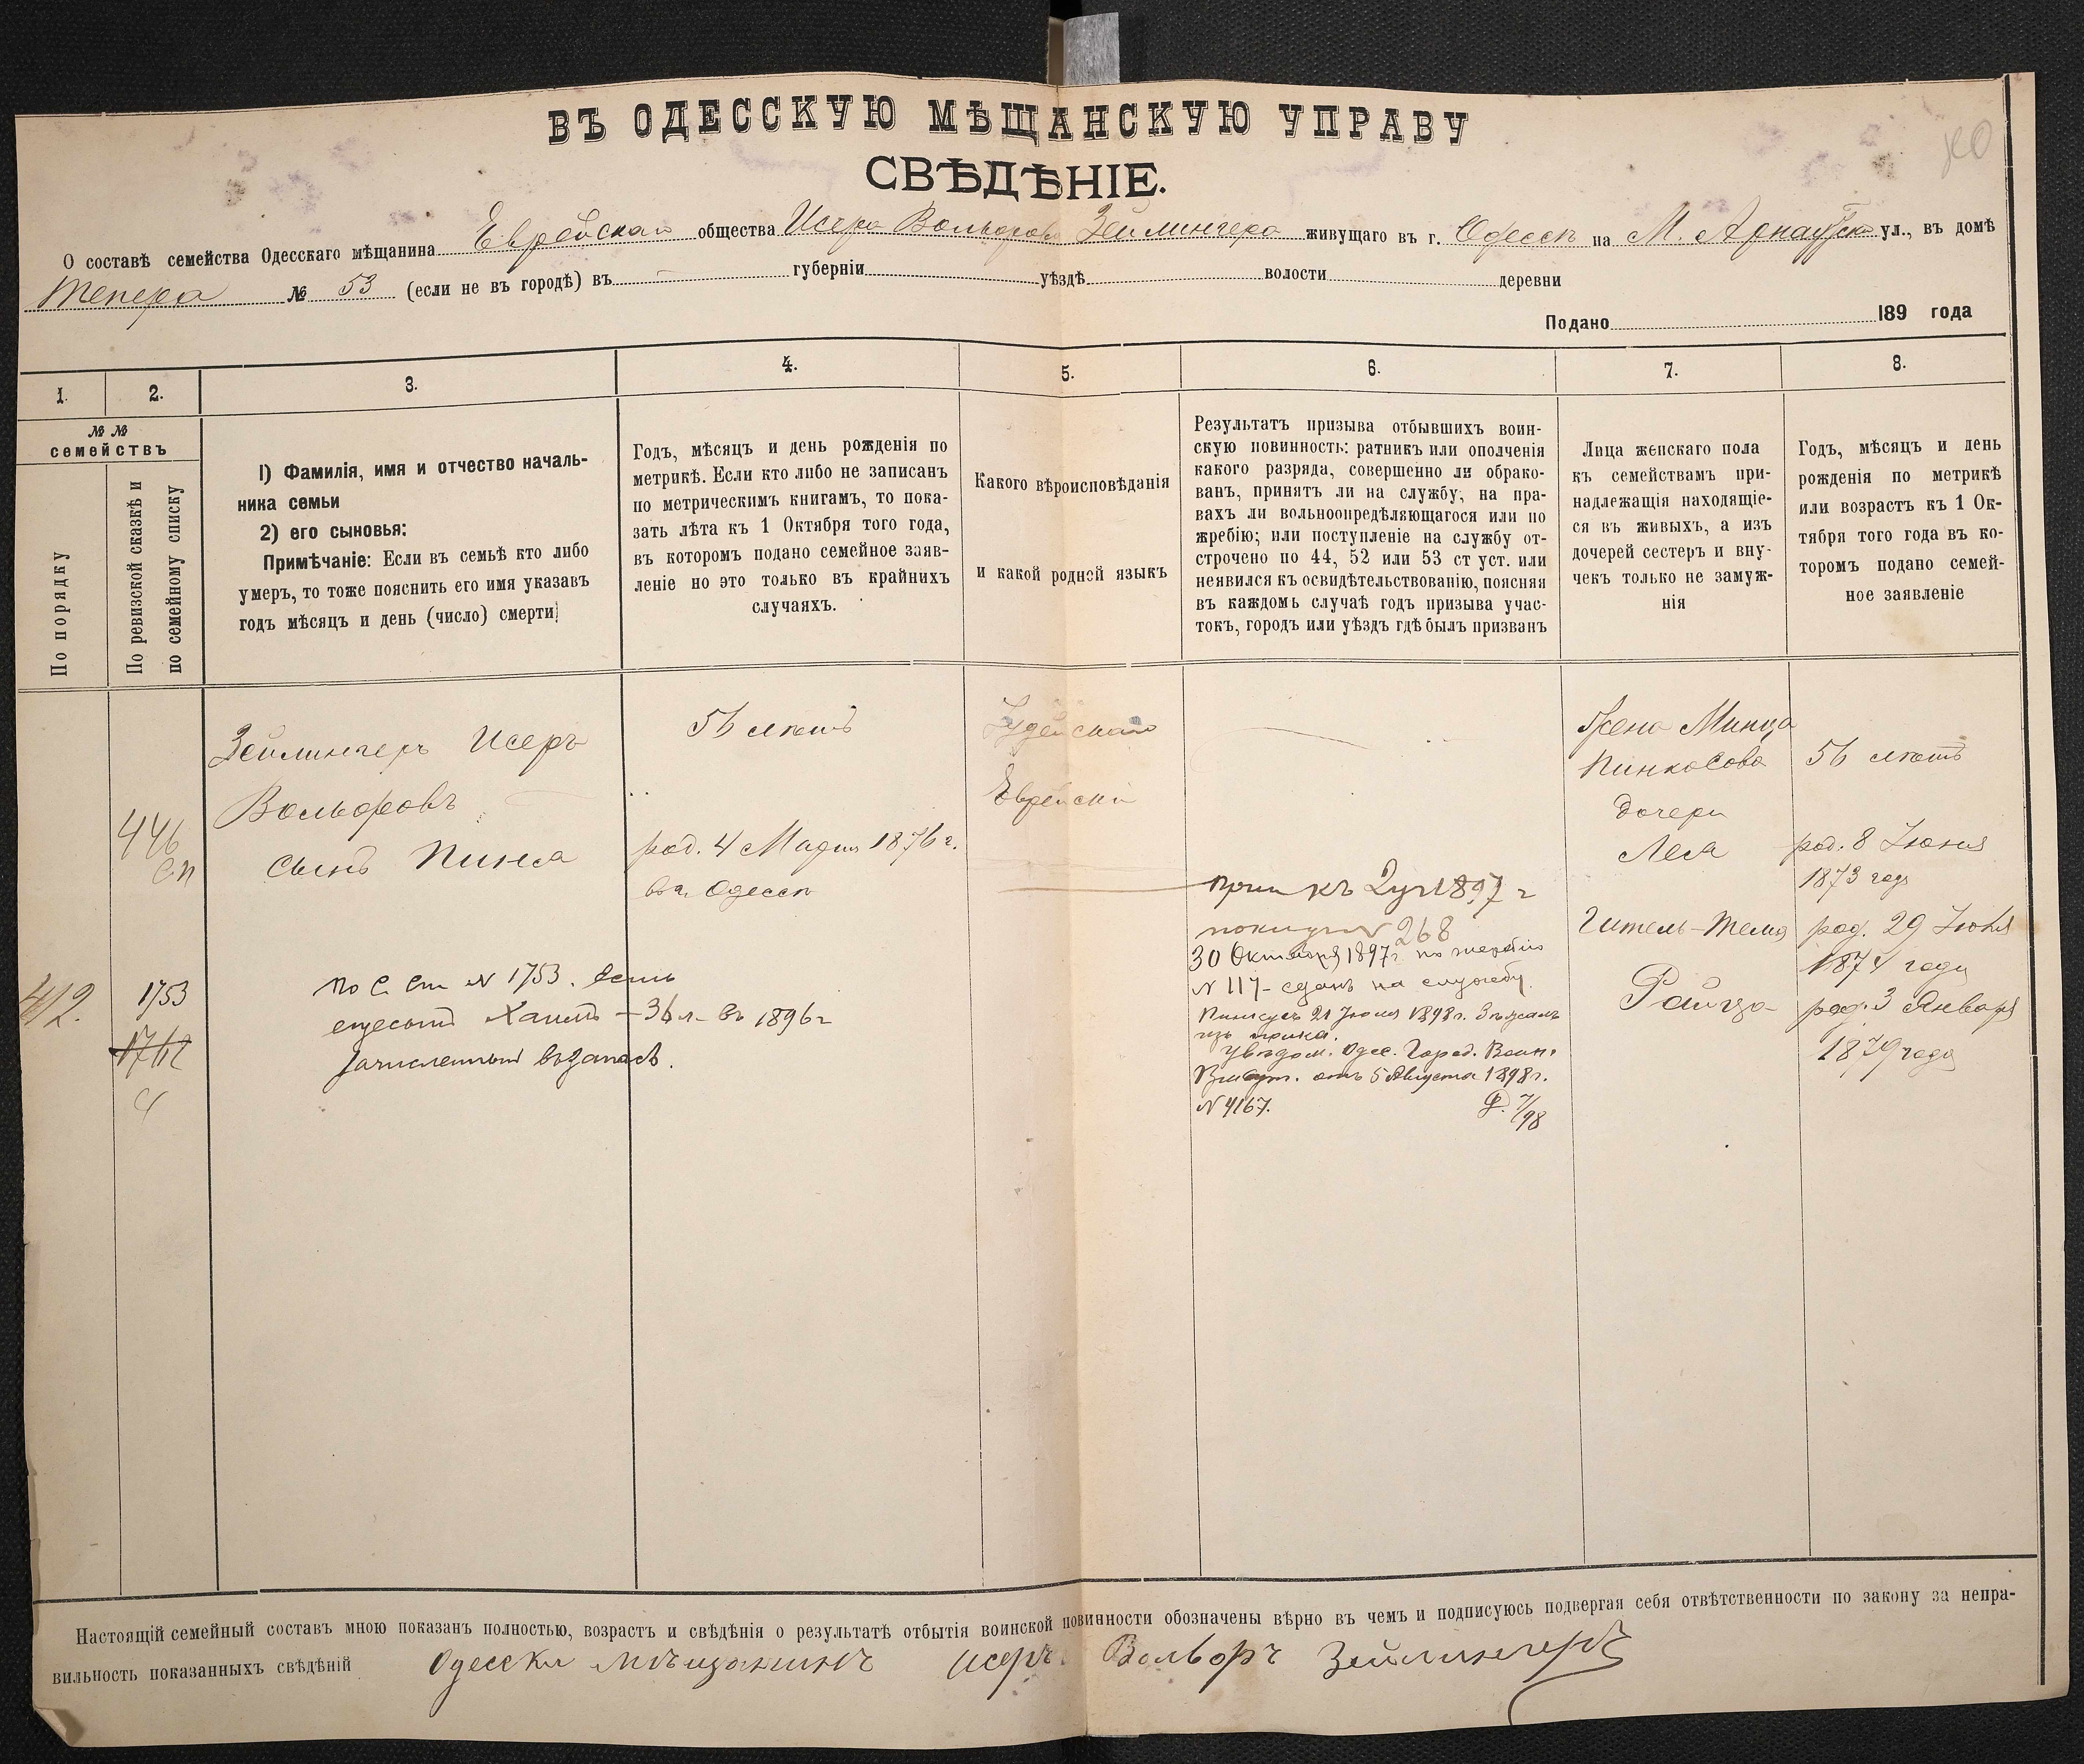 ВЪ ОДЕССКУЮ МѢЩАНСКУЮ УПРАВУ
СВѢДѢНІЕ.
О составѣ семейства Одесскаго мѣщанина Еврейскаго общества Исера Вольфова Зейлингера живущаго въ г. Одессѣ на М. Арнаутской ул., въ домѣ
Тепера № 53 (если не въ городѣ) въ губерніи уѣздѣ волости деревни
Подано 189 года
1.
2.
3.
4.
5.
6.
7.
8.
№ №
семействъ
По порядку
По ревизской сказкѣ и
по семейному списку
1) Фамилія, имя и отчество началь-
ника семьи
2) его сыновья:
Примѣчаніе: Если въ семьѣ кто либо
умеръ, то тоже пояснить его имя указавъ
годъ мѣсяцъ и день (число) смерти;
Годъ, мѣсяцъ и день рожденія по
метрикѣ. Если кто либо не записанъ
по метрическимъ книгамъ, то пока-
зать лѣта къ 1 Октября того года,
въ которомъ подано семейное заяв-
леніе но это только въ крайнихъ
случаяхъ.
Какого вѣроисповѣданія
и какой родной языкъ
Результатъ призыва отбывшихъ воин-
скую повинность: ратникъ или ополченія
какого разряда, совершенно ли обрако-
ванъ, принятъ ли на службу, на пра-
вахъ ли вольноопредѣляющагося или по
жребію; или поступленіе на службу от-
строчено по 44, 52 или 53 ст уст. или
неявился къ освидѣтельствованію, поясняя
въ каждомъ случаѣ годъ призыва учас-
токъ, городъ или уѣздъ гдѣ былъ призванъ
Лица женскаго пола
къ семействамъ при-
надлежащія находящіе-
ся въ живыхъ, а изъ
дочерей сестеръ и вну-
чекъ только не замуж-
нія
Годъ, мѣсяцъ и день
рожденія по метрикѣ
или возрастъ къ 1 Ок-
тября того года въ ко-
торомъ подано семей-
ное заявленіе
412.
446
сп
1753
1762
Зейлингеръ Исеръ
Вольфовъ
сынъ Пинса
По С. Сп. № 1753. есть
еще сынъ Хаимъ – 36 л. въ 1896 г
зачисленный въ запасъ.
56 лѣтъ
род. 4 Марта 1876 г.
въ г. Одессѣ
Іудейскаго
Еврейскій
прип къ 2 уч 1897 г
268
30 Октября 1897 г по жребію
№ 117 – сданъ на службу.
Пинкусъ 21 Іюня 1898 г. бѣжалъ
изъ полка.
Увѣдом. Одес. Город. Воин.
Присут. отъ 5 Августа 1898 г.
№ 4167.
Жена Минца
Пинкасова
дочери
Леся
Гитель-Темя
Райза
56 лѣтъ
род. 8 Іюня
1873 года
род. 29 Іюня
1874 года
род. 3 Января
1879 года
Настоящій семейный составъ мною показанъ полностью, возрастъ и свѣдѣнія о результатѣ отбытія воинской повинности обозначены вѣрно въ чемъ и подписуюсь подвергая себя отвѣтственности по закону за непра-
вильность показанныхъ свѣдѣній Одески мѣщанинъ Исеръ Вольворъ Зейлингеръ